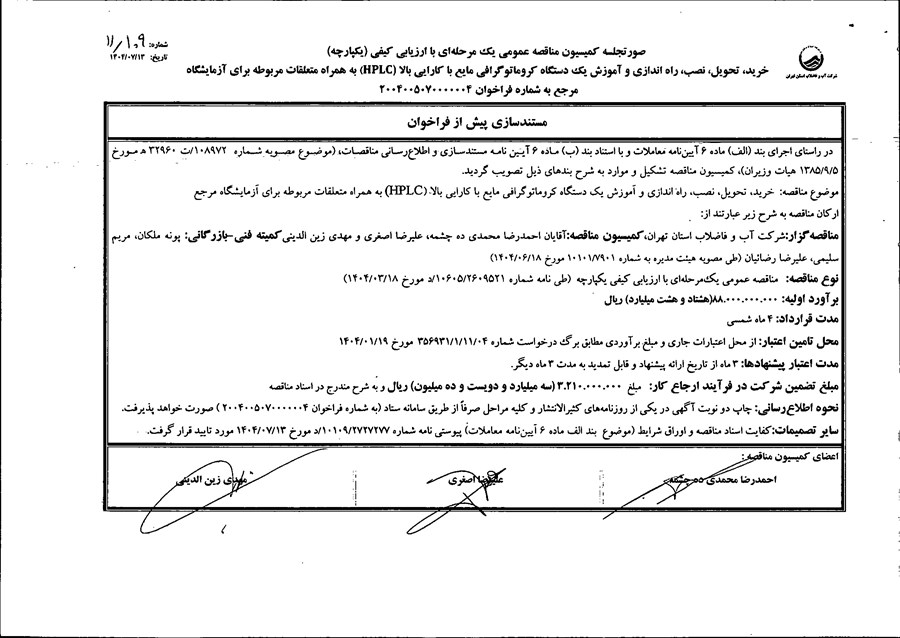 شماره: ۱۱/۱۰۹
تاریخ: ۱۴۰۴/۰۷/۱۳
شرکت آب و فاضلاب استان تهران
صورتجلسه کمیسیون مناقصه عمومی یک مرحله‌ای با ارزیابی کیفی (یکپارچه)
خرید، تحویل، نصب، راه اندازی و آموزش یک دستگاه کروماتوگرافی مایع با کارایی بالا (HPLC) به همراه متعلقات مربوطه برای آزمایشگاه
مرجع به شماره فراخوان ۲۰۰۴۰۰۵۰۷۰۰۰۰۰۰۴
مستندسازی پیش از فراخوان
در راستای اجرای بند (الف) ماده ۶ آیین‌نامه معاملات و با استناد بند (ب) ماده ۶ آیین نامه مستندسازی و اطلاع‌رسانی مناقصات، (موضوع مصوبه شماره ۱۰۸۹۷۲/ت ۳۲۹۶۰ ه مورخ
۱۳۸۵/۹/۵ هیات وزیران)، کمیسیون مناقصه تشکیل و موارد به شرح بندهای ذیل تصویب گردید.
موضوع مناقصه: خرید، تحویل، نصب، راه اندازی و آموزش یک دستگاه کروماتوگرافی مایع با کارایی بالا (HPLC) به همراه متعلقات مربوطه برای آزمایشگاه مرجع
ارکان مناقصه به شرح زیر عبارتند از:
مناقصه‌گزار: شرکت آب و فاضلاب استان تهران، کمیسیون مناقصه: آقایان احمدرضا محمدی ده چشمه، علیرضا اصغری و مهدی زین الدینی کمیته فنی-بازرگانی: پونه ملکان، مریم
سلیمی، علیرضا رضائیان (طی مصوبه هیئت مدیره به شماره ۱۰۱۰۱/۷۹۰۱ مورخ ۱۴۰۴/۰۶/۱۸)
نوع مناقصه: مناقصه عمومی یک‌مرحله‌ای با ارزیابی کیفی یکپارچه (طی نامه شماره ۱۰۶۰۵/۲۶۰۹۵۲۱/د مورخ ۱۴۰۴/۰۳/۱۸)
برآورد اولیه: ۸۸.۰۰۰.۰۰۰.۰۰۰ (هشتاد و هشت میلیارد) ریال
مدت قرارداد: ۴ ماه شمسی
محل تامین اعتبار: از محل اعتبارات جاری و مبلغ برآوردی مطابق برگ درخواست شماره ۳۵۶۹۳۱/۱/۱۱/۰۴ مورخ ۱۴۰۴/۰۱/۱۹
مدت اعتبار پیشنهادها: ۳ ماه از تاریخ ارائه پیشنهاد و قابل تمدید به مدت ۳ ماه دیگر.
مبلغ تضمین شرکت در فرآیند ارجاع کار: مبلغ ۳.۲۱۰.۰۰۰.۰۰۰ (سه میلیارد و دویست و ده میلیون) ریال و به شرح مندرج در اسناد مناقصه
نحوه اطلاع‌رسانی: چاپ دو نوبت آگهی در یکی از روزنامه‌های کثیرالانتشار و کلیه مراحل صرفاً از طریق سامانه ستاد (به شماره فراخوان ۲۰۰۴۰۰۵۰۷۰۰۰۰۰۰۴ ) صورت خواهد پذیرفت.
سایر تصمیمات: کفایت اسناد مناقصه و اوراق شرایط (موضوع بند الف ماده ۶ آیین‌نامه معاملات) پیوستی نامه شماره ۱۰۱۰۹/۲۷۲۷۲۷۷/د مورخ ۱۴۰۴/۰۷/۱۳ مورد تایید قرار گرفت.
اعضای کمیسیون مناقصه:
احمدرضا محمدی ده چشمه علیرضا اصغری مهدی زین الدینی